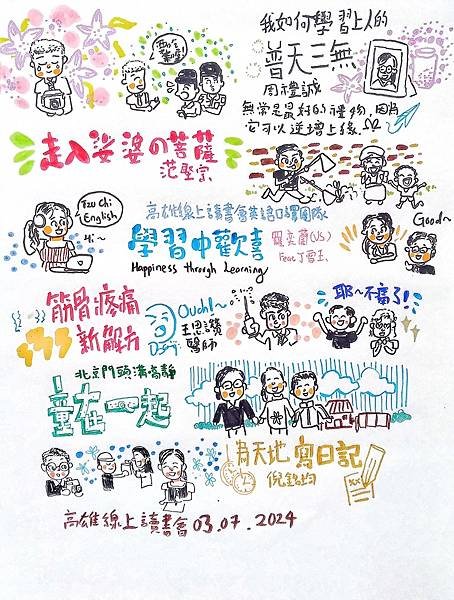 我如何學習上人的
普天三無
周禮誠
無常是最好的禮物,因為
它可以逆增上緣.
走入娑婆の菩薩
范堅宗
Tzu Chi
English
Hi~
高雄線上讀書會英語口譯團隊
學習中歡喜
Happiness through Learning
羅奕蘭(US)
Feat丁雪玉
Good~
筋骨疼痛
新解方
Ouch!
王恩讚
醫師
耶~不痛了!
北京門頭溝高靜
童在一起
天地寫日記
倪銘均
高雄線上讀書會 03.07.2024